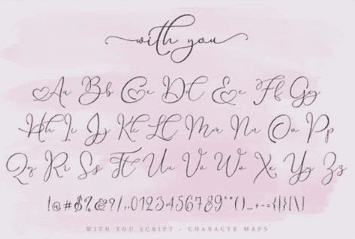 with you
Aa Bb Cc Dd Ee Ff Gg
Hh Ii Jj Kk Ll Mm Nn Oo Pp
Qq Rr Ss Tt Uu Vv Ww Xx Yy Zz
!@#$%&?/..0123456789""()_+-={}[]|\
WITH YOU SCRIPT - CHARACTE MAPS